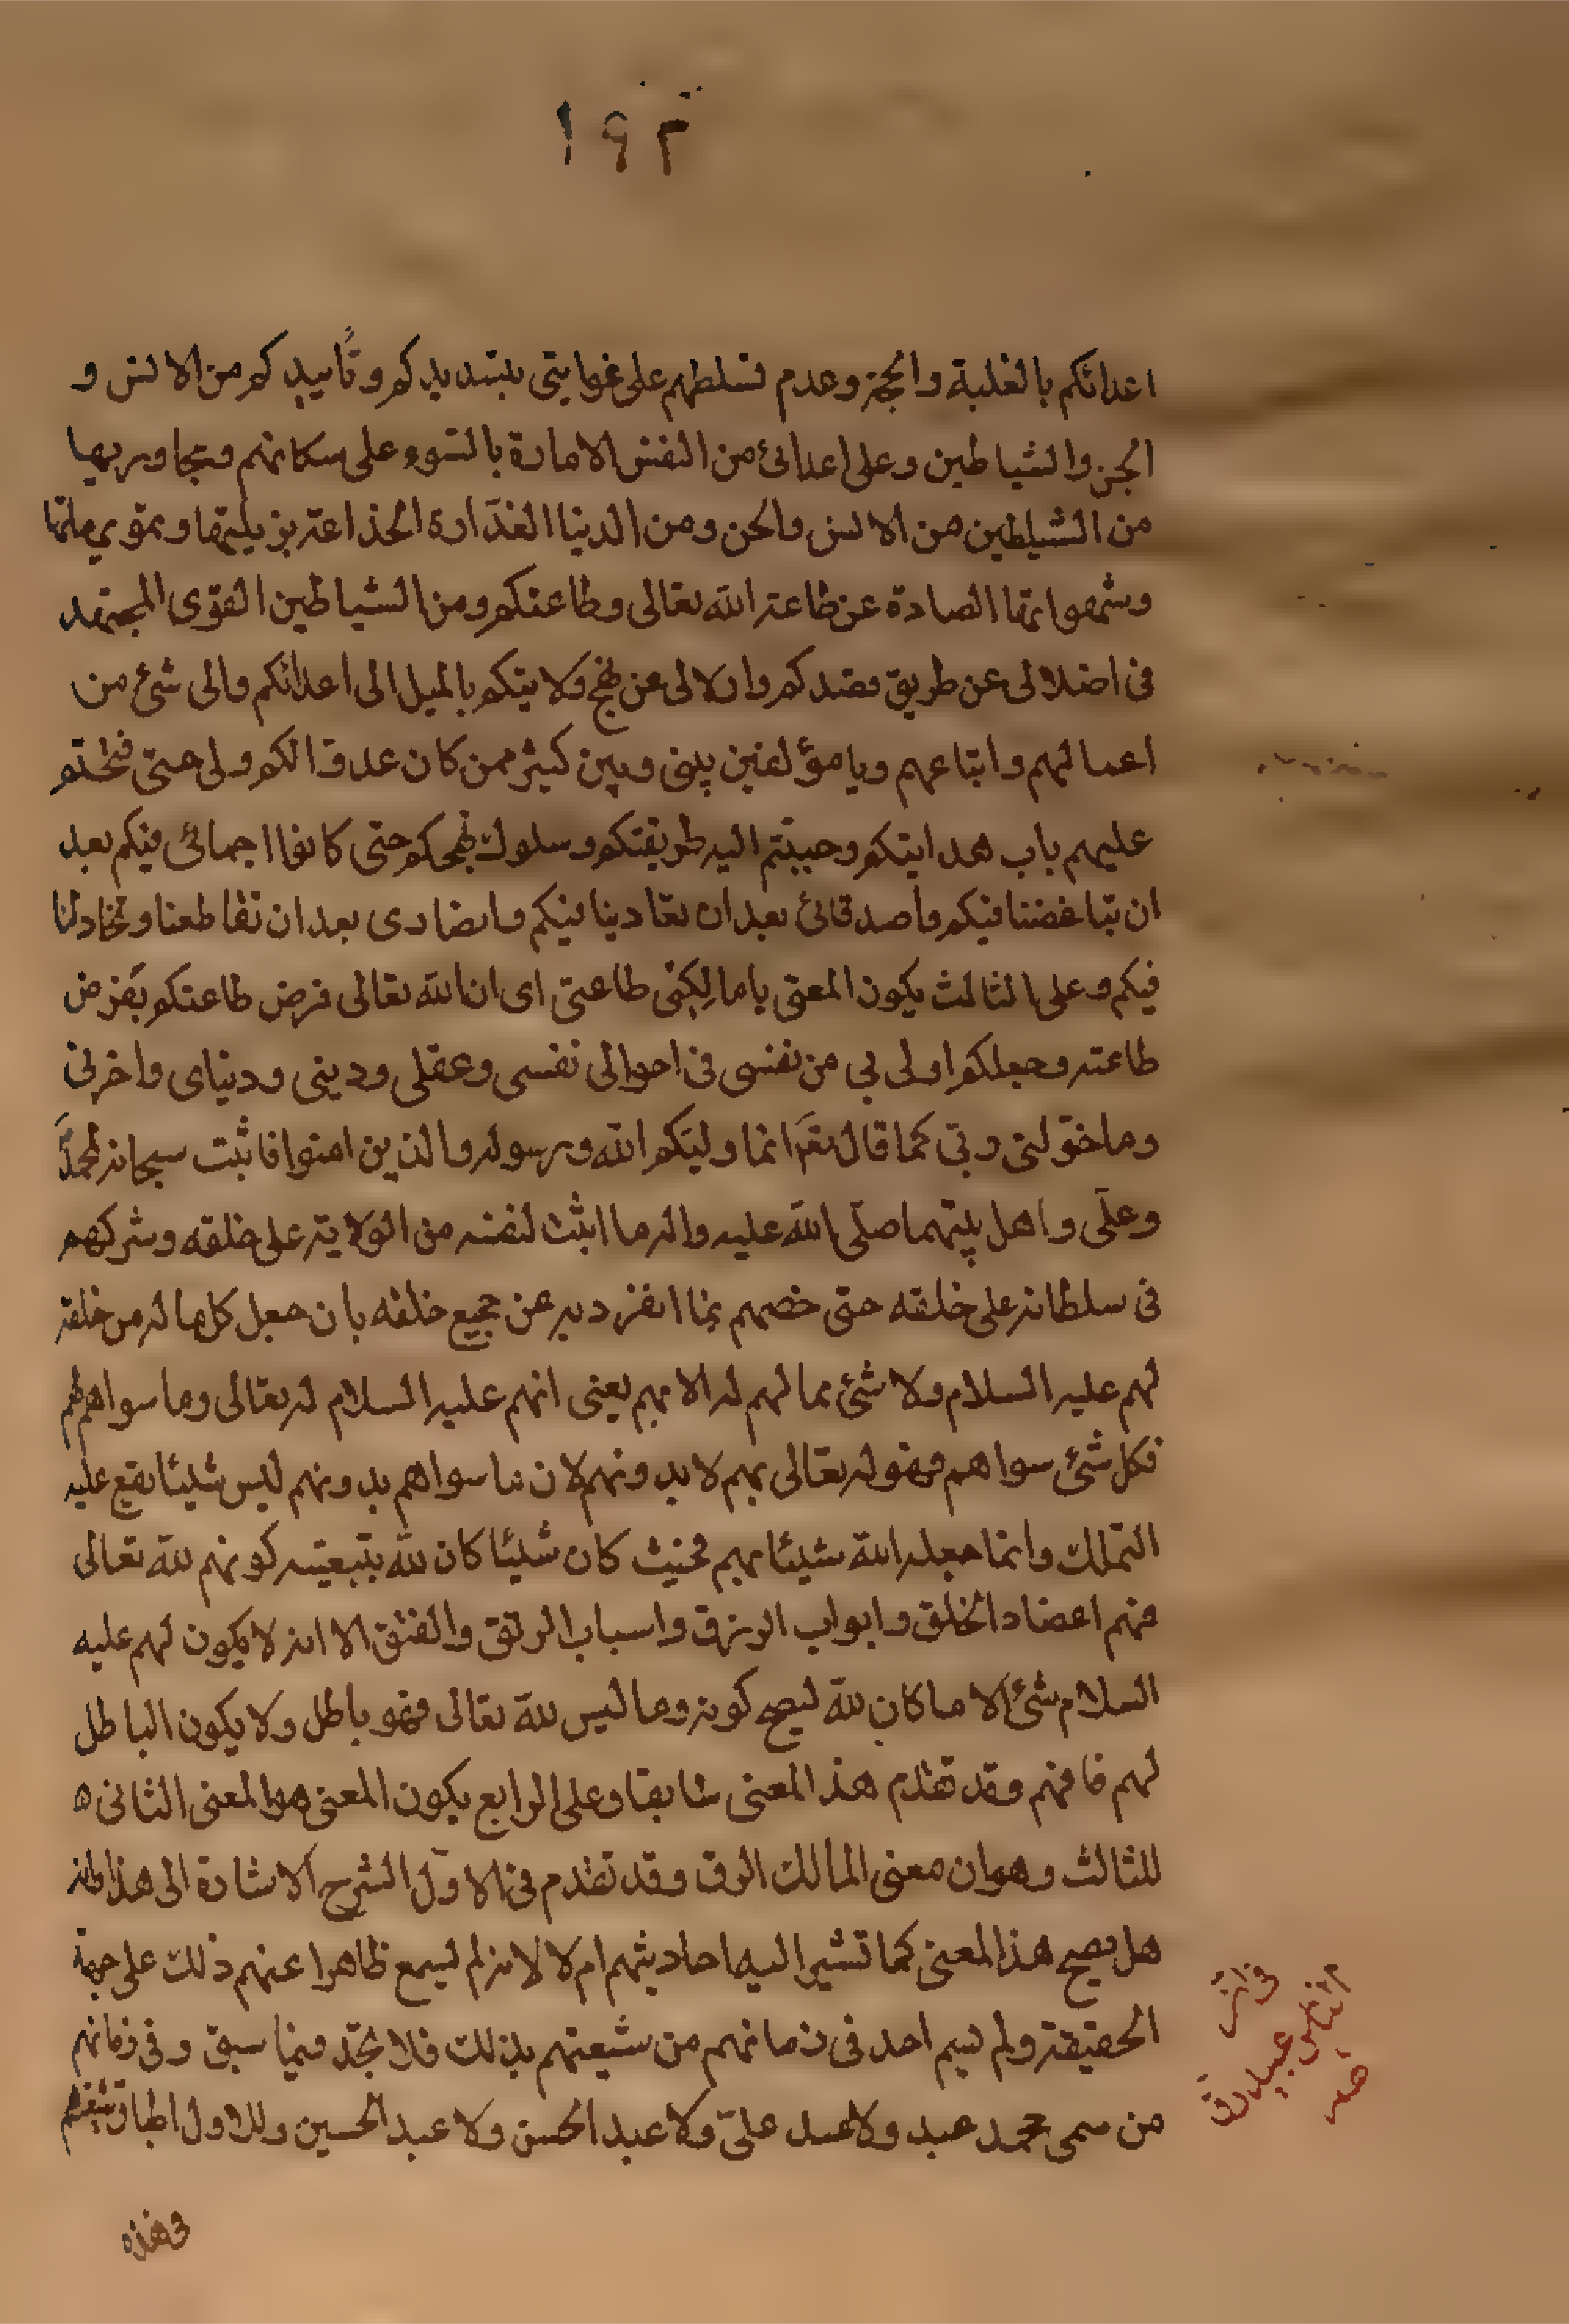 ١٩٣
اعدائكم بالغلبة والحجز وعدم تسلطهم على غوايتى بتسديدكم وتأييدكم من الانس و
الجن والشياطين وعلى اعدائئ من النفس الامارة بالسّوء على سكانهم ومجاوريها
من الشياطين من الانس والجن ومن الدنيا الغدّارة الخداعة بزينتها وبمقوي ملتها
وشهواتها الصادة عن طاعة الله تعالى وطاعتكم ومن الشياطين القوى المجتهد
فى اضلالى عن طريق قصدكم وازلالى عن نهج ولايتكم بالميل الى اعدائكم والى شئ من
اعمالهم واتباعهم ويا مؤلفين بينى وبين كثير ممن كان عدوّا لكم ولى حتى فتحتم
عليهم باب هدايتكم وحببتم اليه طريقتكم وسلوك نهجكم حتى كانوا احبائى فيكم بعد
ان تباغضنا فيكم واصدقائئ بعد ان تعادينا فيكم وانصارى بعد ان تقاطعنا وتخاذلنا
فيكم وعلى الثالث يكون المعنى يا مالِكِىْ طاعتى اى ان الله تعالى فرض طاعتكم بفرض
طاعته وجعلكم اولى بى من نفسى فى احوالى نفسى وعقلى ودينى ودنياى واخرتى
وما خوّلنى ربّى كما قال تعَ انما وليّكم الله ورسوله والذين امنوا فاثبت سبحانه لمحمدَّ
وعلّى واهل بيتهما صلّى الله عليه واله ما اثبت لنفسه من الولاية على خلقه وشركهم
فى سلطانه على خلقه حتى خصهم بما انفرد به عن جميع خلقه بان جعل كل ما له من خلقه
لهم عليه السلام ولا شئ مما لهم له الا بهم يعنى انهم عليه السلام له تعالى وما سواهم لهم
فكل شئ سواهم فهو له تعالى بهم لا بدونهم لان ما سواهم بدونهم ليس شيئا يقع عليه
التملك وانما جعله الله شيئا بهم فحيث كان شيئا كان لله بتبعيته كونهم لله تعالى
فهم اعضاد الخلق وابواب الرزق واسباب الرتق والفتق الا انه لا يكون لهم عليه
السلام شئ الا ما كان لله ليصح كونه وما ليس لله تعالى فهو باطل ولا يكون الباطل
لهم فافهم وقد تقدم هذا المعنى سابقا وعلى الرابع يكون المعنى هو المعنى الثانى ه
للثالث وهو ان معنى المالك الرق وقد تقدم فى الاول الشرح الاشارة الى هذا وانه
هل يصح هذا المعنى كما تشير اليه احاديثهم ام لا لانه لم يسمع ظاهرا عنهم ذلك على جهة
الحقيقة ولم يسم احد فى زمانهم من شيعتهم بذلك فلا تجد فيما سبق وفى زمانهم
من سمى عبد محمد ولا عبد علىّ ولا عبد الحسن ولا عبد الحسين وللاول اطباق شيعتهم
فى ان
الناس عبيد رق
فهذه